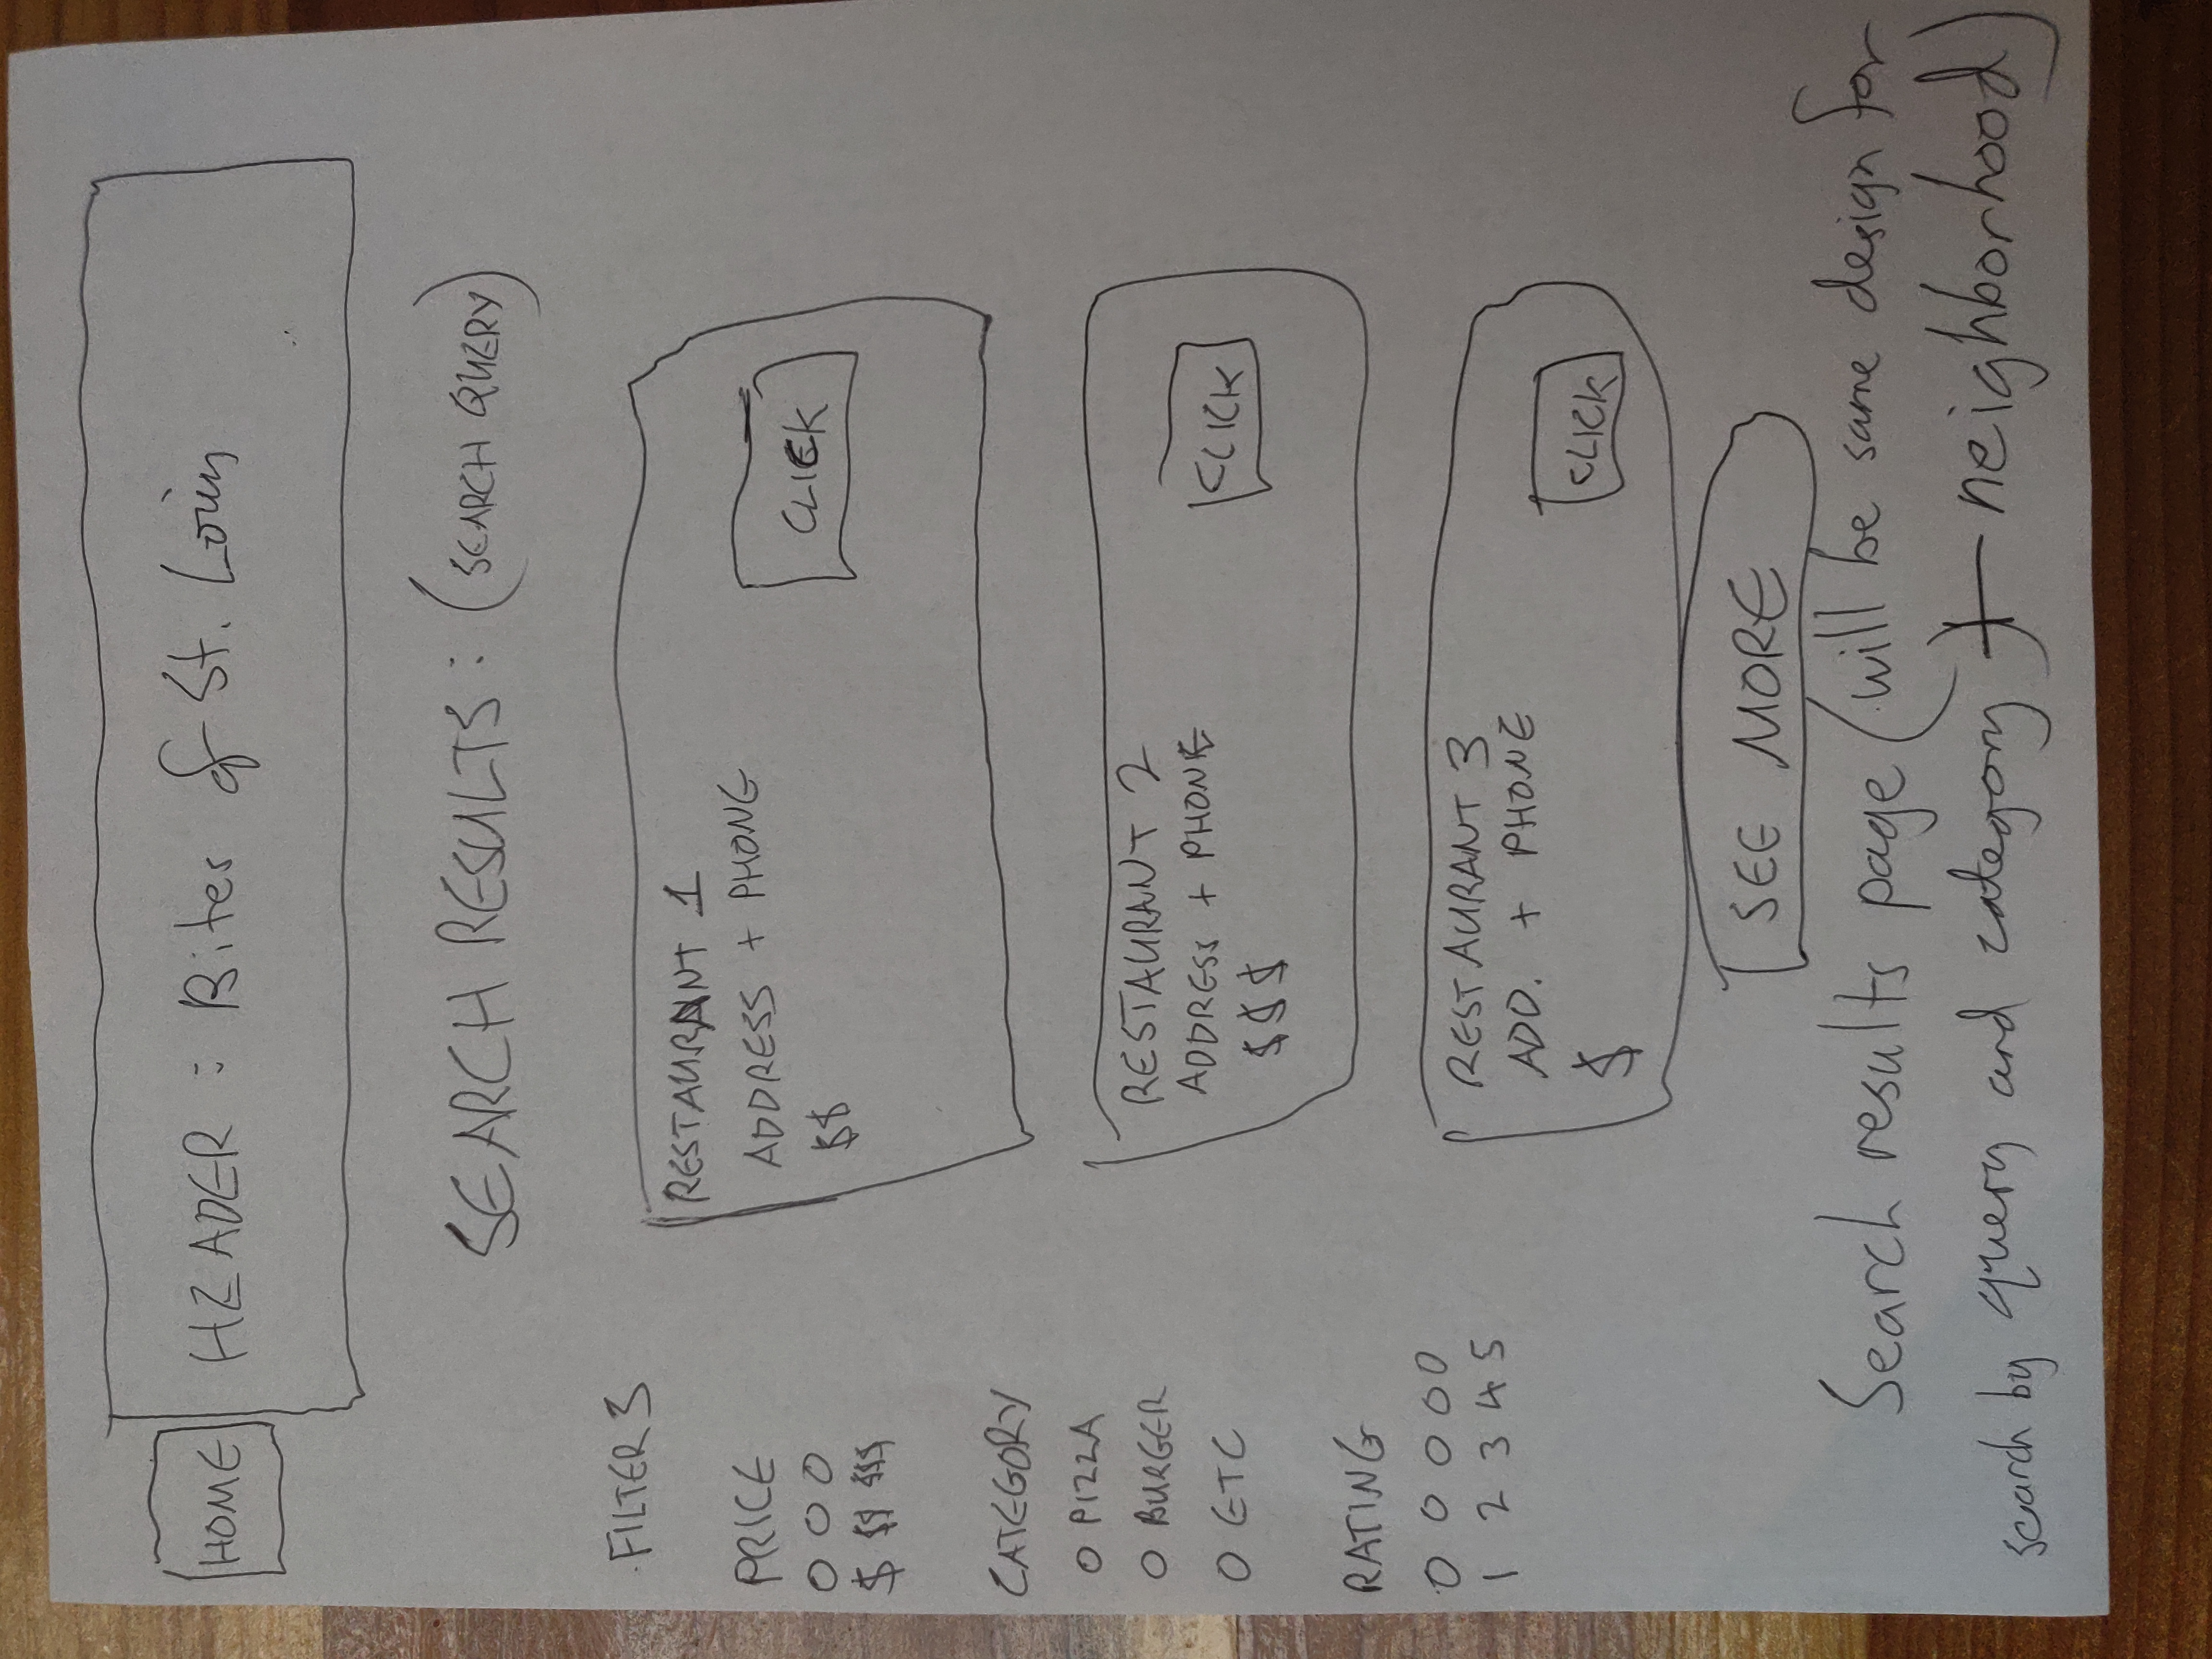 HOME
HEADER : Bites of St. Louis
SEARCH RESULTS : (SEARCH QUERY)
FILTERS
PRICE
$ $$ $$$
CATEGORY
O PIZZA
O BURGER
O ETC
RATING
1 2 3 4 5
RESTAURANT 1
ADDRESS + PHONE
$$
CLICK
RESTAURANT 2
ADDRESS + PHONE
$$$
CLICK
RESTAURANT 3
ADD. + PHONE
$
CLICK
SEE MORE
Search results page (will be same design for
search by query and category + neighborhood)